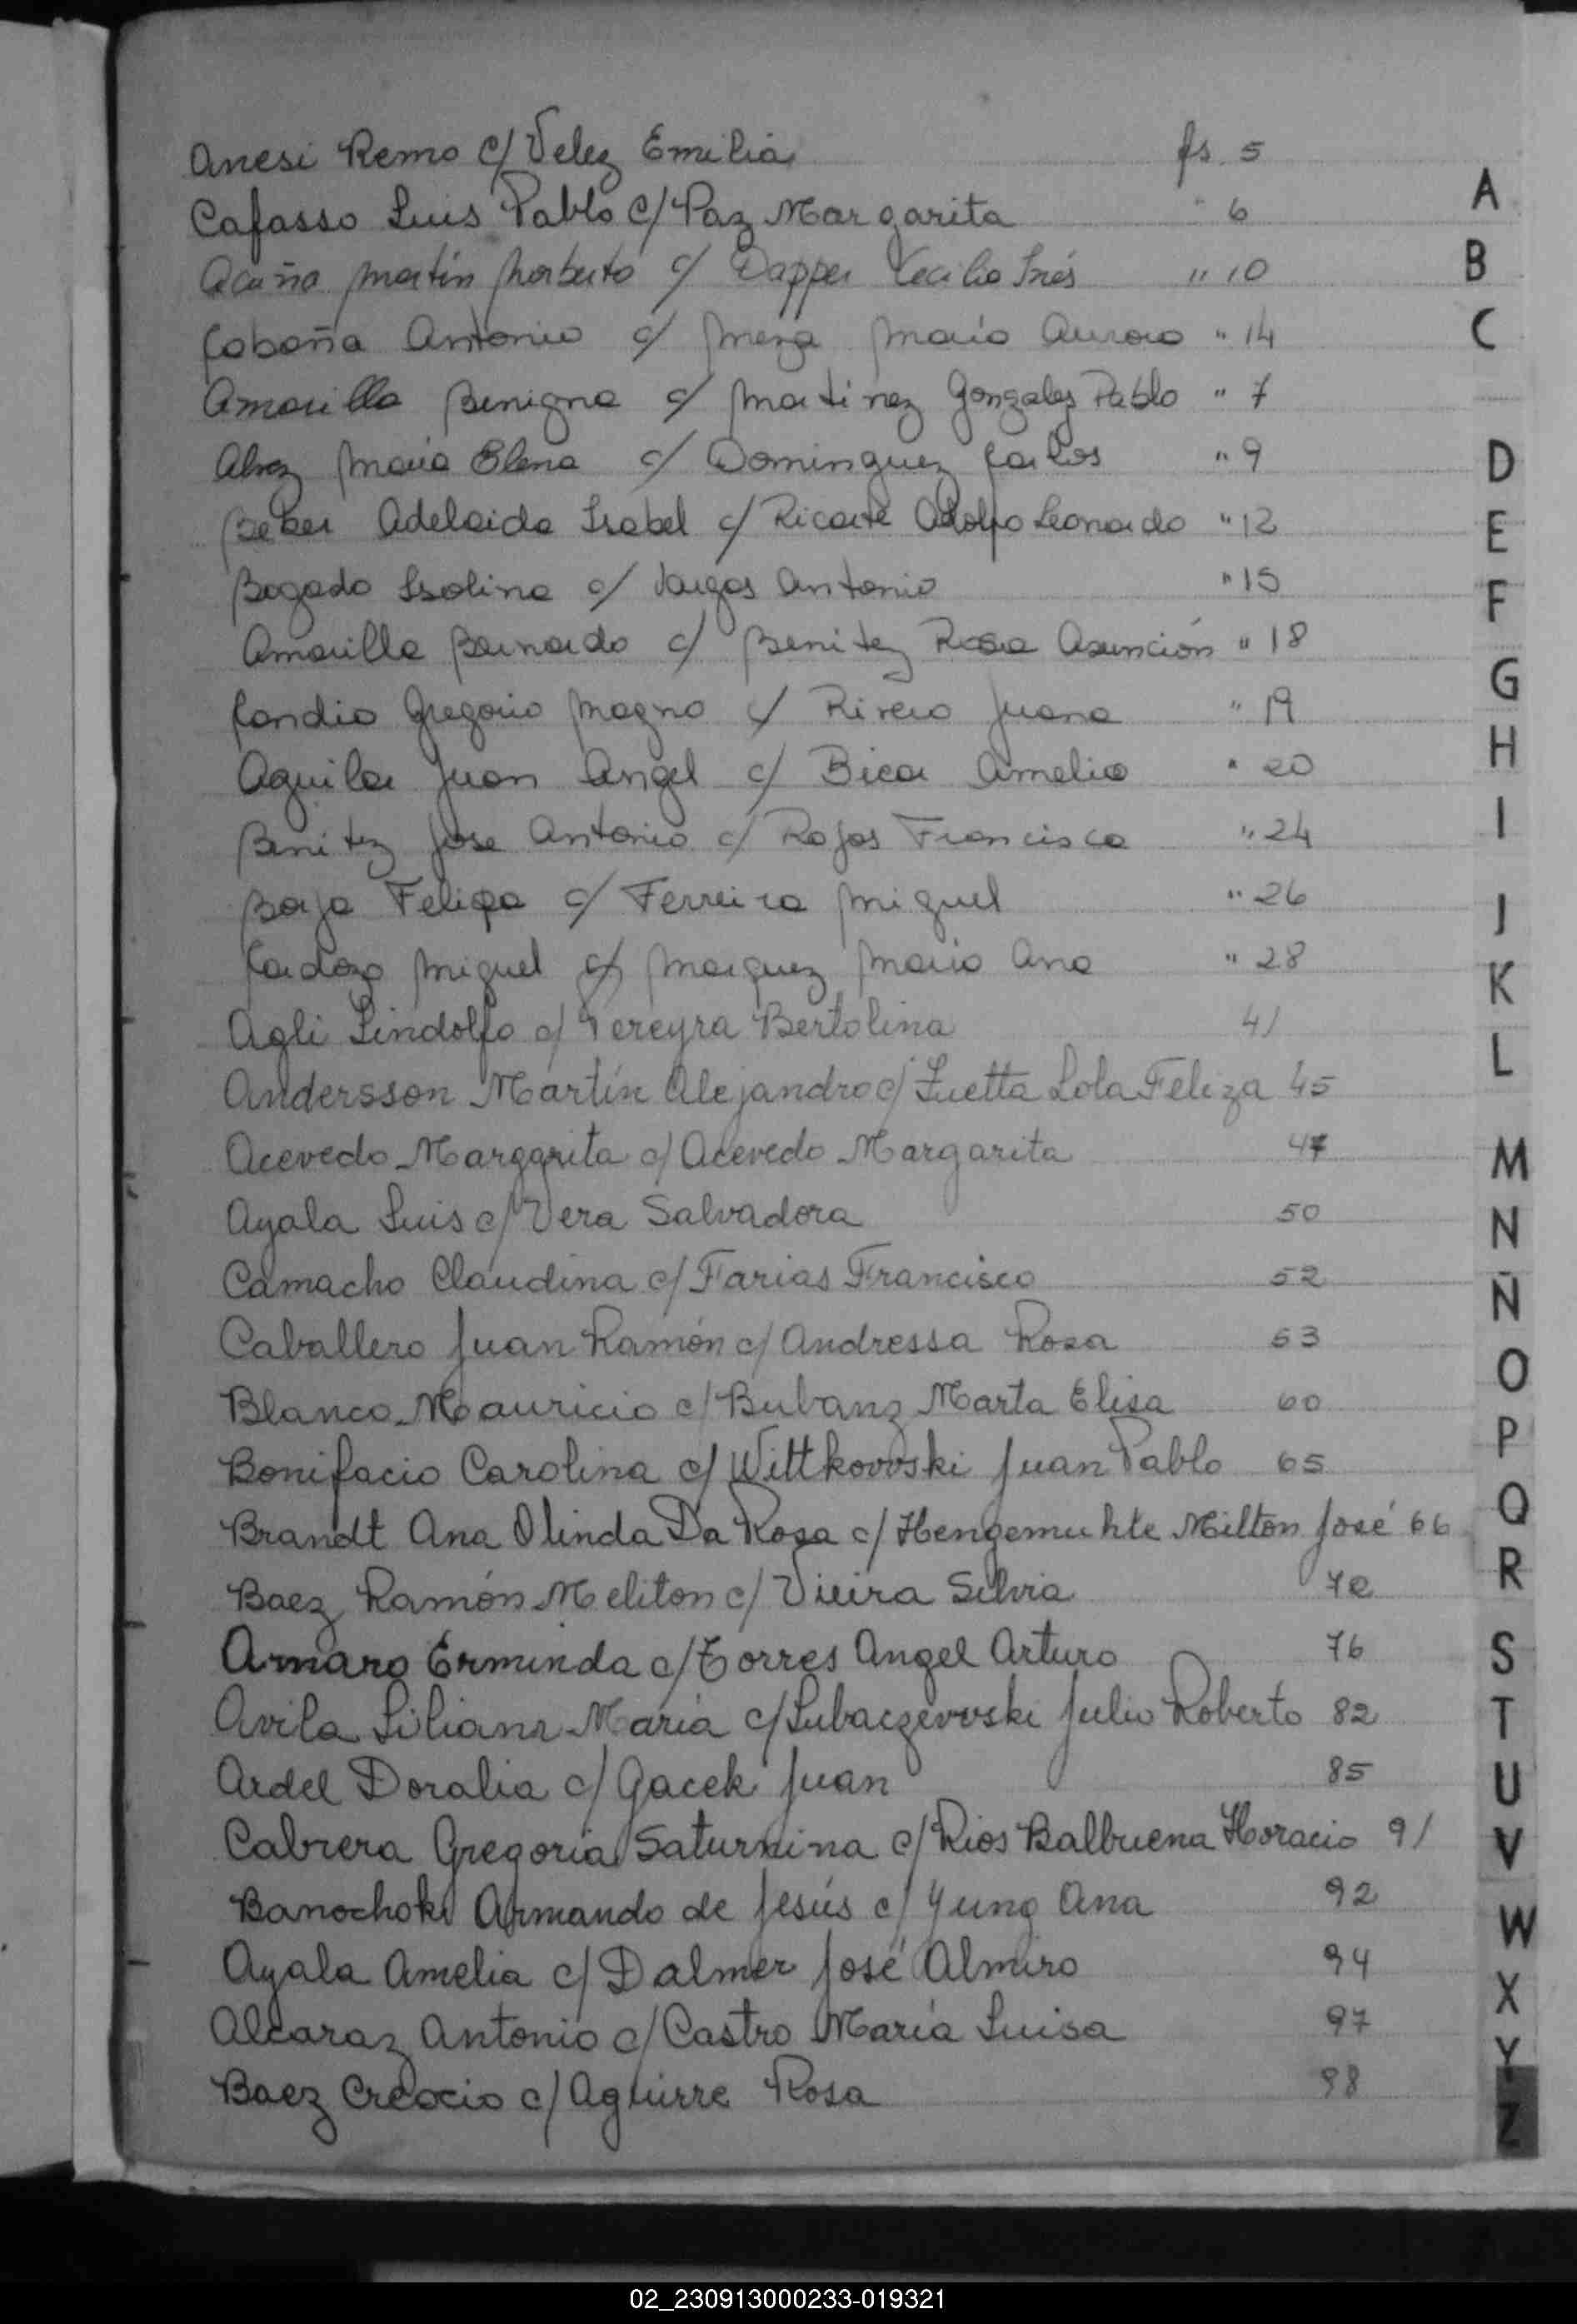 Anesi Remo c/ Velez Emilia fs. 5
Cafasso Luis Pablo c/ Paz Margarita " 6
Acuña Martín Norberto c/ Dapper Cecilia Inés " 10
Cabaña Antonio c/ Meza María Aurora " 14
Amarilla Benigna c/ Martinez Gonzalez Pablo " 7
Alvez María Elena c/ Dominguez Carlos " 9
Beber Adelaida Isabel c/ Ricarte Adolfo Leonardo " 12
Bogado Isolina c/ Vargas Antonio " 15
Amarilla Bernardo c/ Benitez Rosa Asunción " 18
Candia Gregorio Magno c/ Rivero Juana " 19
Aguilar Juan Angel c/ Bicar Amelia " 20
Benitez Jose Antonio c/ Rojas Francisca " 24
Borja Felipa c/ Ferreira Miguel " 26
Cardozo Miguel c/ Marquez María Ana " 28
Agli Lindolfo c/ Pereyra Bertolina 41
Andersson Martín Alejandro c/ Luetta Lola Feliza 45
Acevedo Margarita c/ Acevedo Margarita 47
Ayala Luis c/ Vera Salvadora 50
Camacho Claudina c/ Farias Francisco 52
Caballero Juan Ramón c/ Andressa Rosa 53
Blanco Mauricio c/ Bubanz Marta Elisa 60
Bonifacio Carolina c/ Wittkowski Juan Pablo 65
Brandt Ana Olinda Da Rosa c/ Hengemuhte Milton José 66
Baez Ramón Meliton c/ Vieira Silvia 72
Amaro Erminda c/ Torres Angel Arturo 76
Avila Liliana María c/ Lubaczewski Julio Roberto 82
Ardel Doralia c/ Gacek Juan 85
Cabrera Gregoria Saturnina c/ Rios Balbuena Horacio 91
Banochoki Armando de Jesús c/ Yung Ana 92
Ayala Amelia c/ Dalmer José Almiro 94
Alcaraz Antonio c/ Castro María Luisa 97
Baez c/ Aguirre Rosa 98
A
B
C
D
E
F
G
H
I
J
K
L
M
N
Ñ
O
P
Q
R
S
T
U
V
W
X
Y
Z
02_230913000233-019321